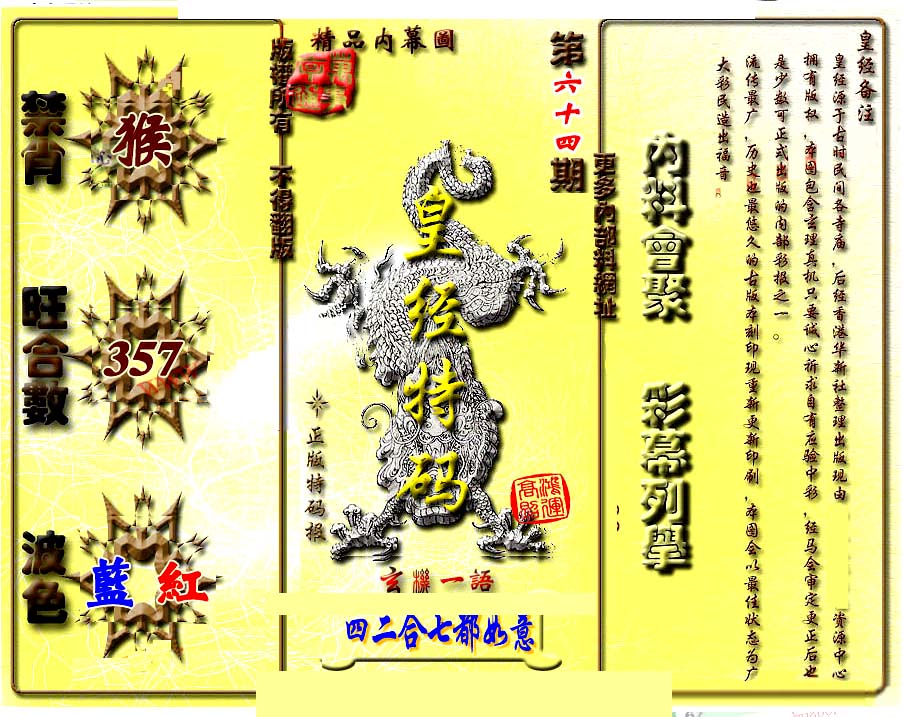 精品内幕圖
第六十四期
版權所有 不得翻版
更多內部料網址
禁肖
猴
旺合數
357
波色
藍 紅
皇经特码
正版特码报
鴻運高照
玄機一語
四二合七都如意
内料會聚 彩幕列舉
皇经备注
皇经源于古时民间各寺庙，后经香港华新社整理出版现由 资源中心
拥有版权，本图包含玄理真机只要诚心祈求自有应验中彩，经马会审定更正后也
是少数可正式出版的内部彩报之一。
流传最广，历史也最悠久的古版本刻印现重新更新印刷，本图会以最佳状态为广
大彩民造出福音